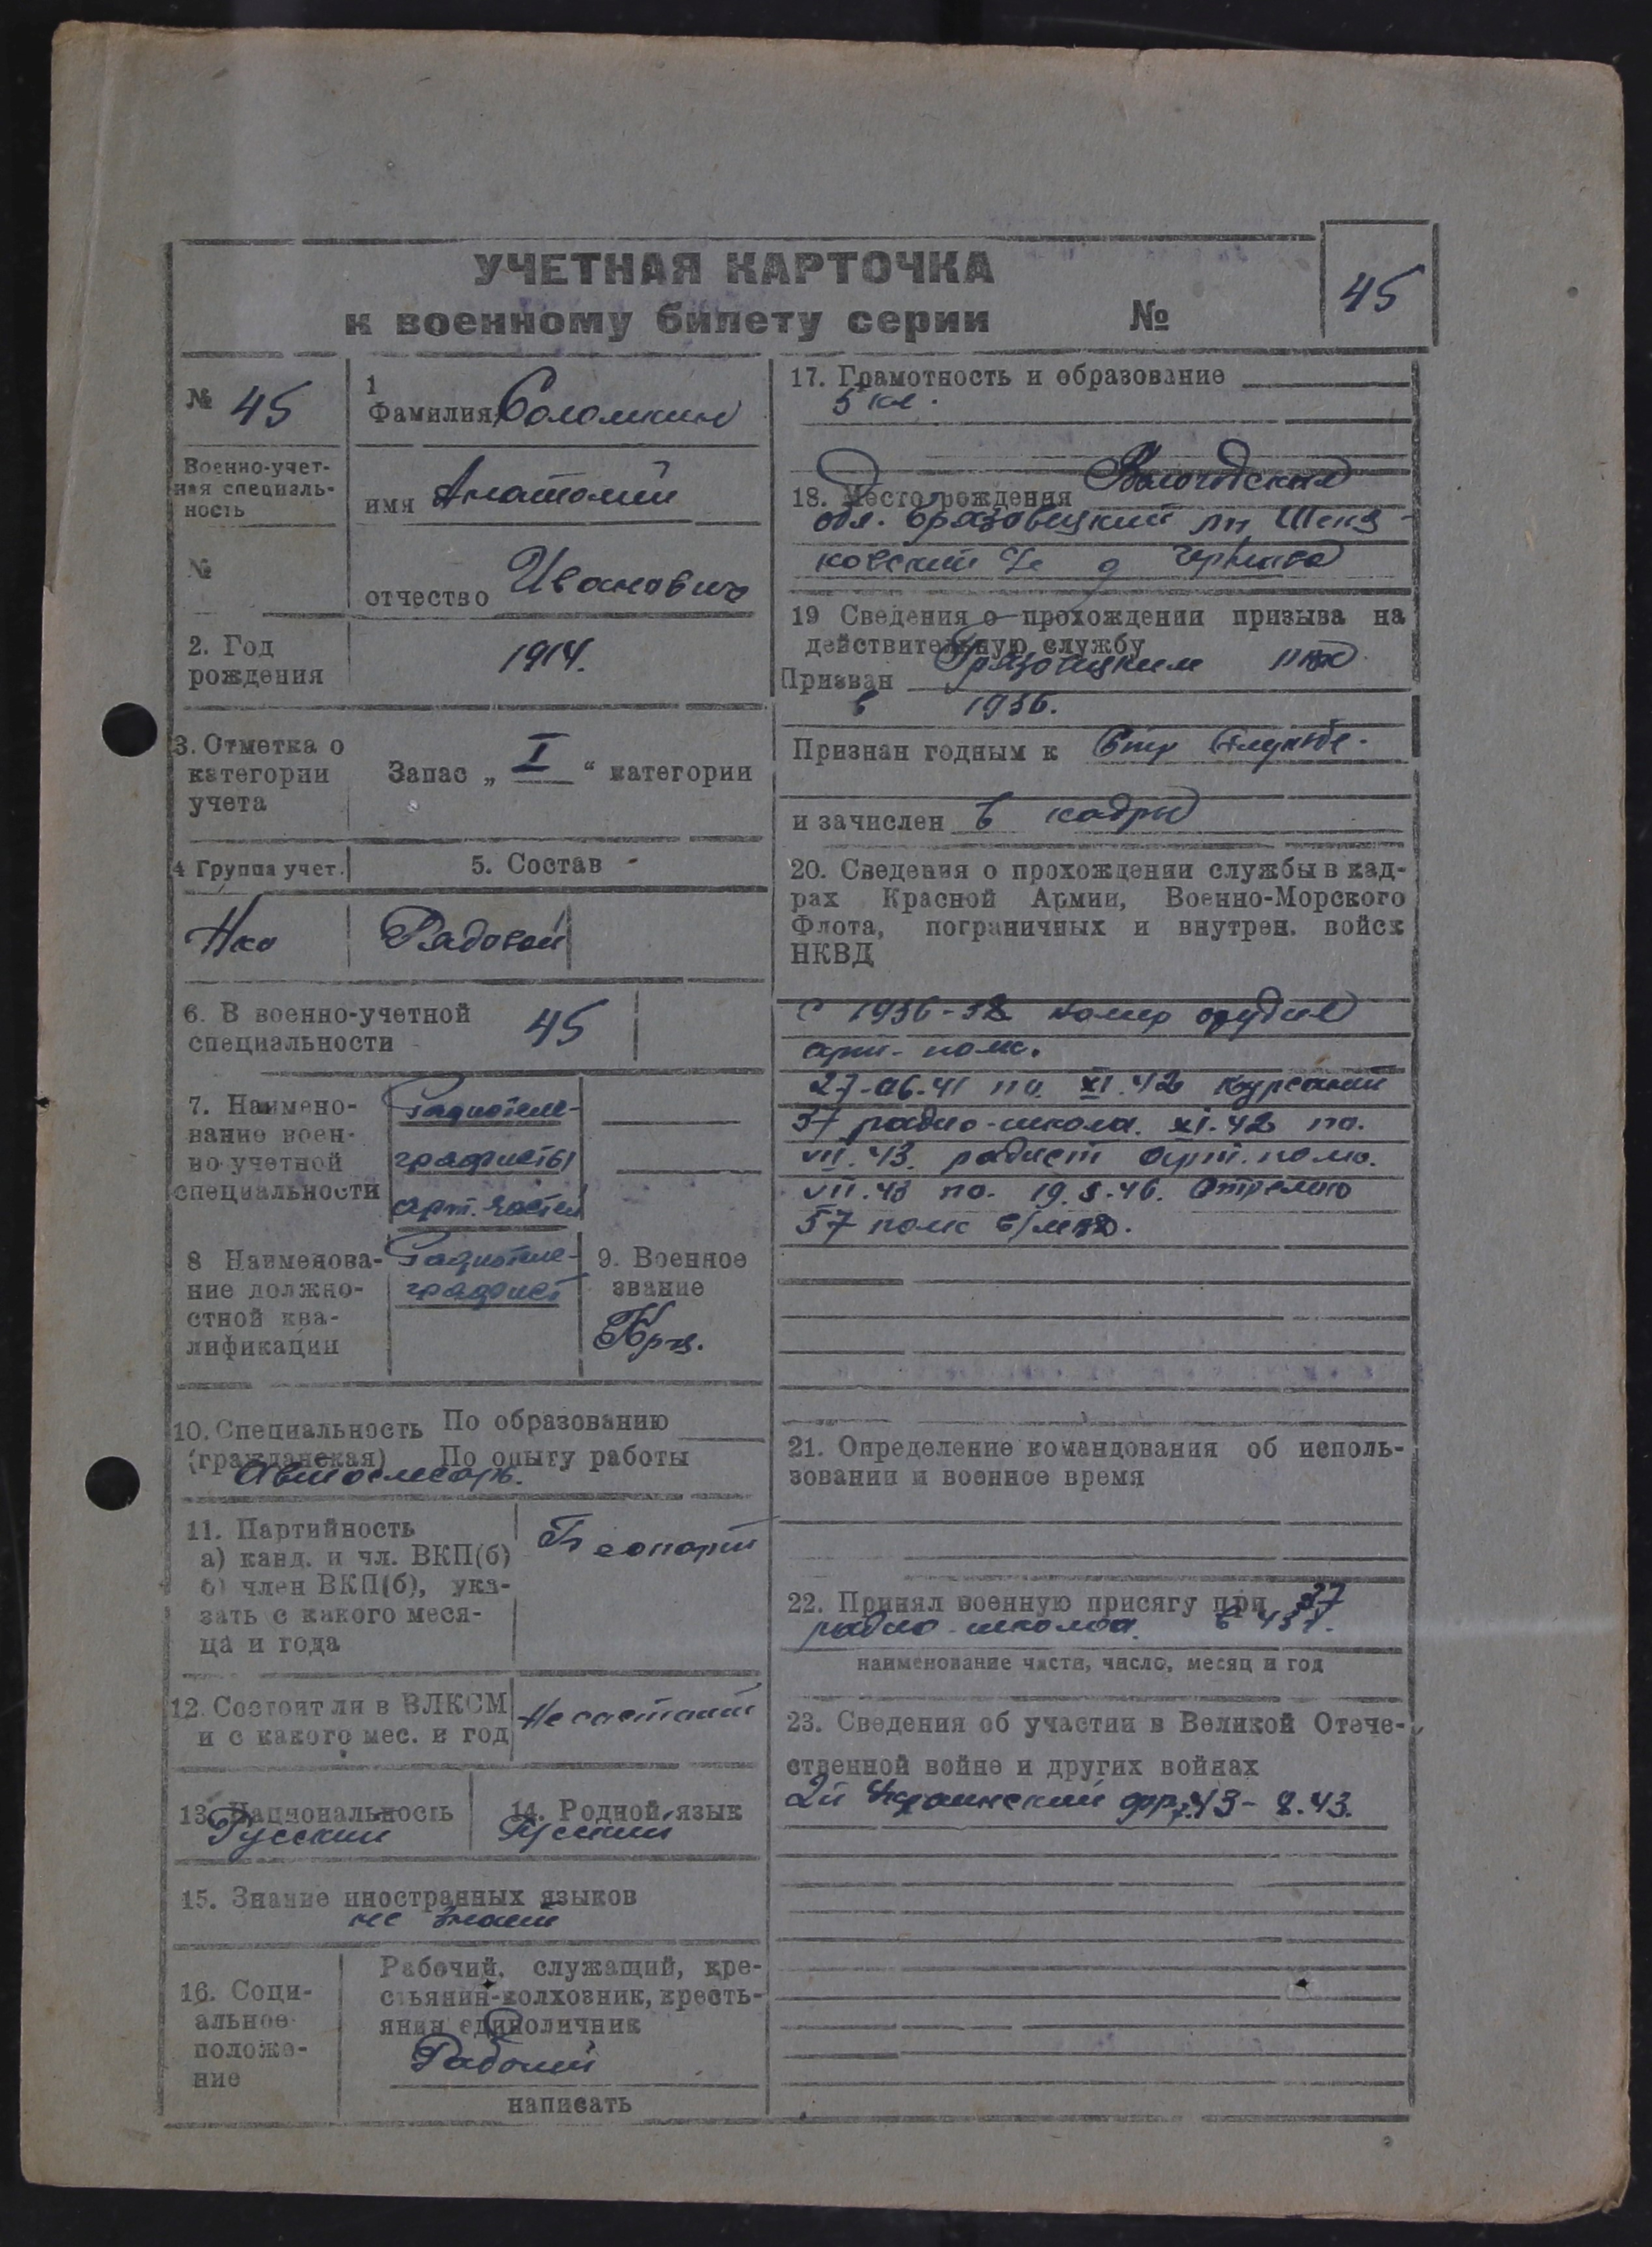 УЧЕТНАЯ КАРТОЧКА
к военному билету серии №
45
№ 45
Военно-учет-
ная специаль-
ность
№
1
Фамилия Соломкин
имя Анатолий
отчество Иванович
2. Год
рождения
1914.
3. Отметка о
категории
учета
Запас „ I “ категории
4 Группа учет.
5. Состав
Нко
Рядовой
6. В военно-учетной
специальности
45
7. Наимено-
вание воен-
но-учетной
специальности
Радиотеле-
графисты
арт. частей
8 Наименова-
ние должно-
стной ква-
лификации
Радиотеле-
графист
9. Военное
звание
Кр-ц.
10. Специальность По образованию
(гражданская) По опыту работы
Автослесарь.
11. Партийность
а) канд. и чл. ВКП(б)
б) член ВКП(б), ука-
зать с какого меся-
ца и года
Беспарт
12 Состоит ли в ВЛКСМ
и с какого мес. и год
Не состоит
13. Национальность
Русский
14. Родной язык
Русский
15. Знание иностранных языков
не знает
16. Соци-
альное
положе-
ние
Рабочий, служащий, кре-
стьянин-колхозник, кресть-
янин единоличник
Рабочий
написать
17. Грамотность и образование
5 кл.
18. Место рождения Вологодская
обл. Грязовецкий рн
ковский д
19 Сведения о прохождении призыва на
действительную службу
Призван Грязовецким
в 1936.
Признан годным к Стр службе.
и зачислен в кадры
20. Сведения о прохождении службы в кад-
рах Красной Армии, Военно-Морского
Флота, пограничных и внутрен. войск
НКВД
с 1936-38 номер орудия
арт- полк.
27-06.41 по XI.42 курсант
37 радио-школа. XI.42 по.
VII.43. радист арт. полк.
VII.43 по. 19.5.46. Стрелок
57 полк
21. Определение командования об исполь-
зовании и военное время
22. Принял военную присягу при 37
радио-школа. в 43г.
наименование части, число, месяц и год
23. Сведения об участии в Великой Отече-
ственной войне и других войнах
2й Украинский фр. 43- 8.43.